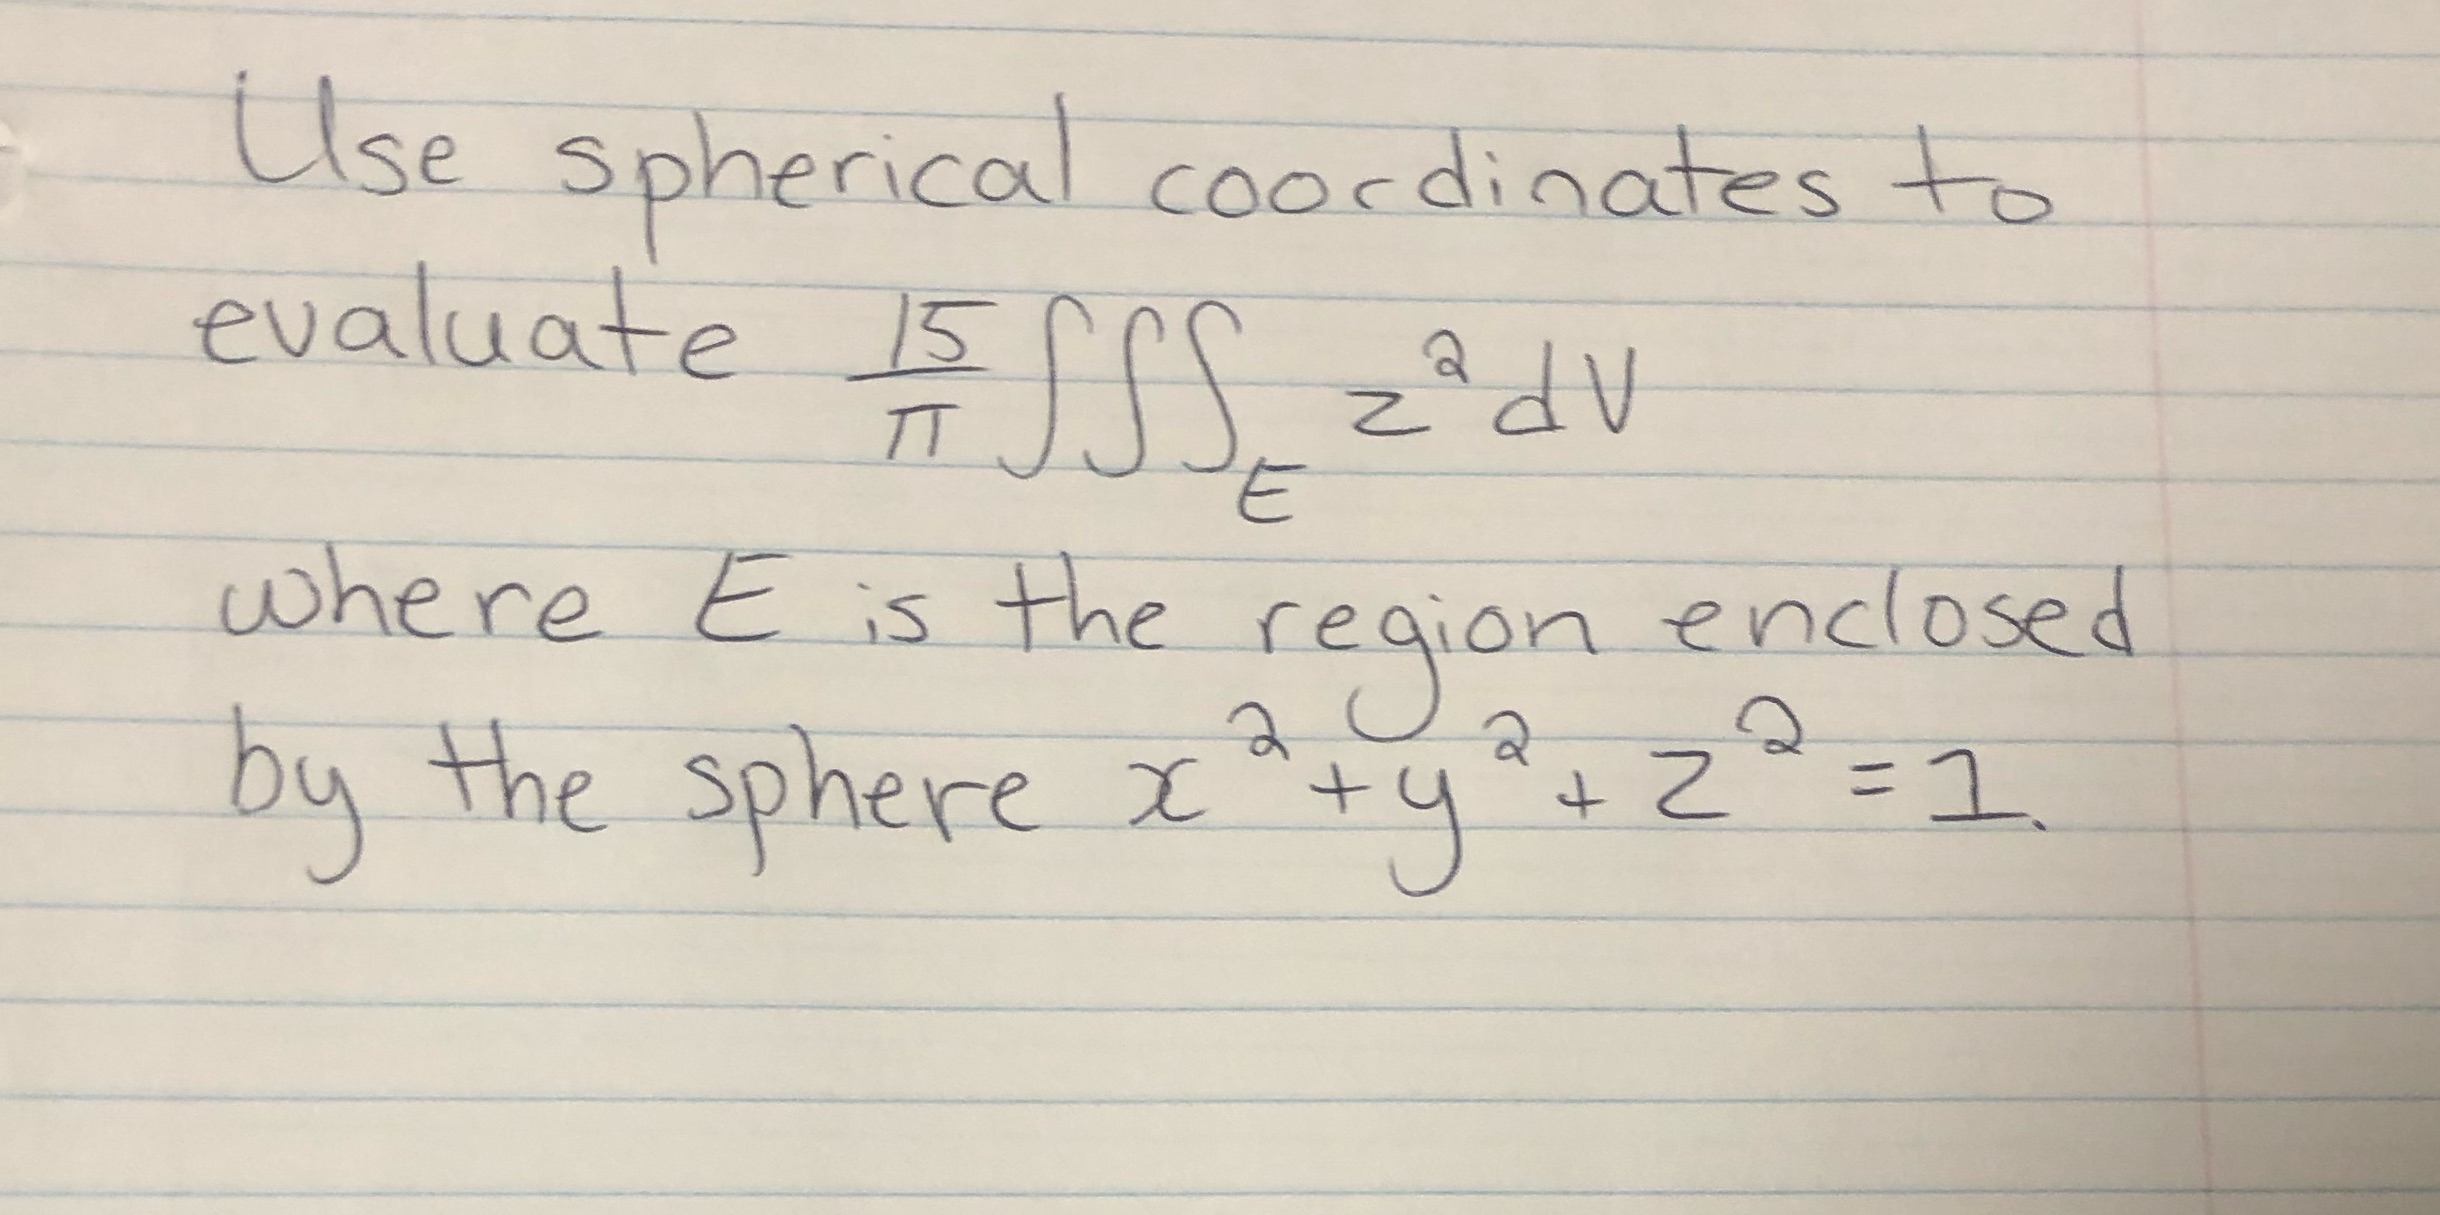 Use spherical coordinates to
evaluate 15/π ∭_E z² dV
where E is the region enclosed
by the sphere x² + y² + z² = 1.